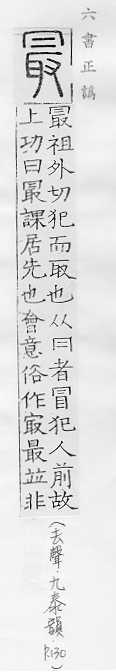 六書正譌
冣
冣祖外切犯而取也从曰者冒犯人前故
上功曰冣課居先也會意俗作㝡最竝非
(去聲·九泰韻 P.130)